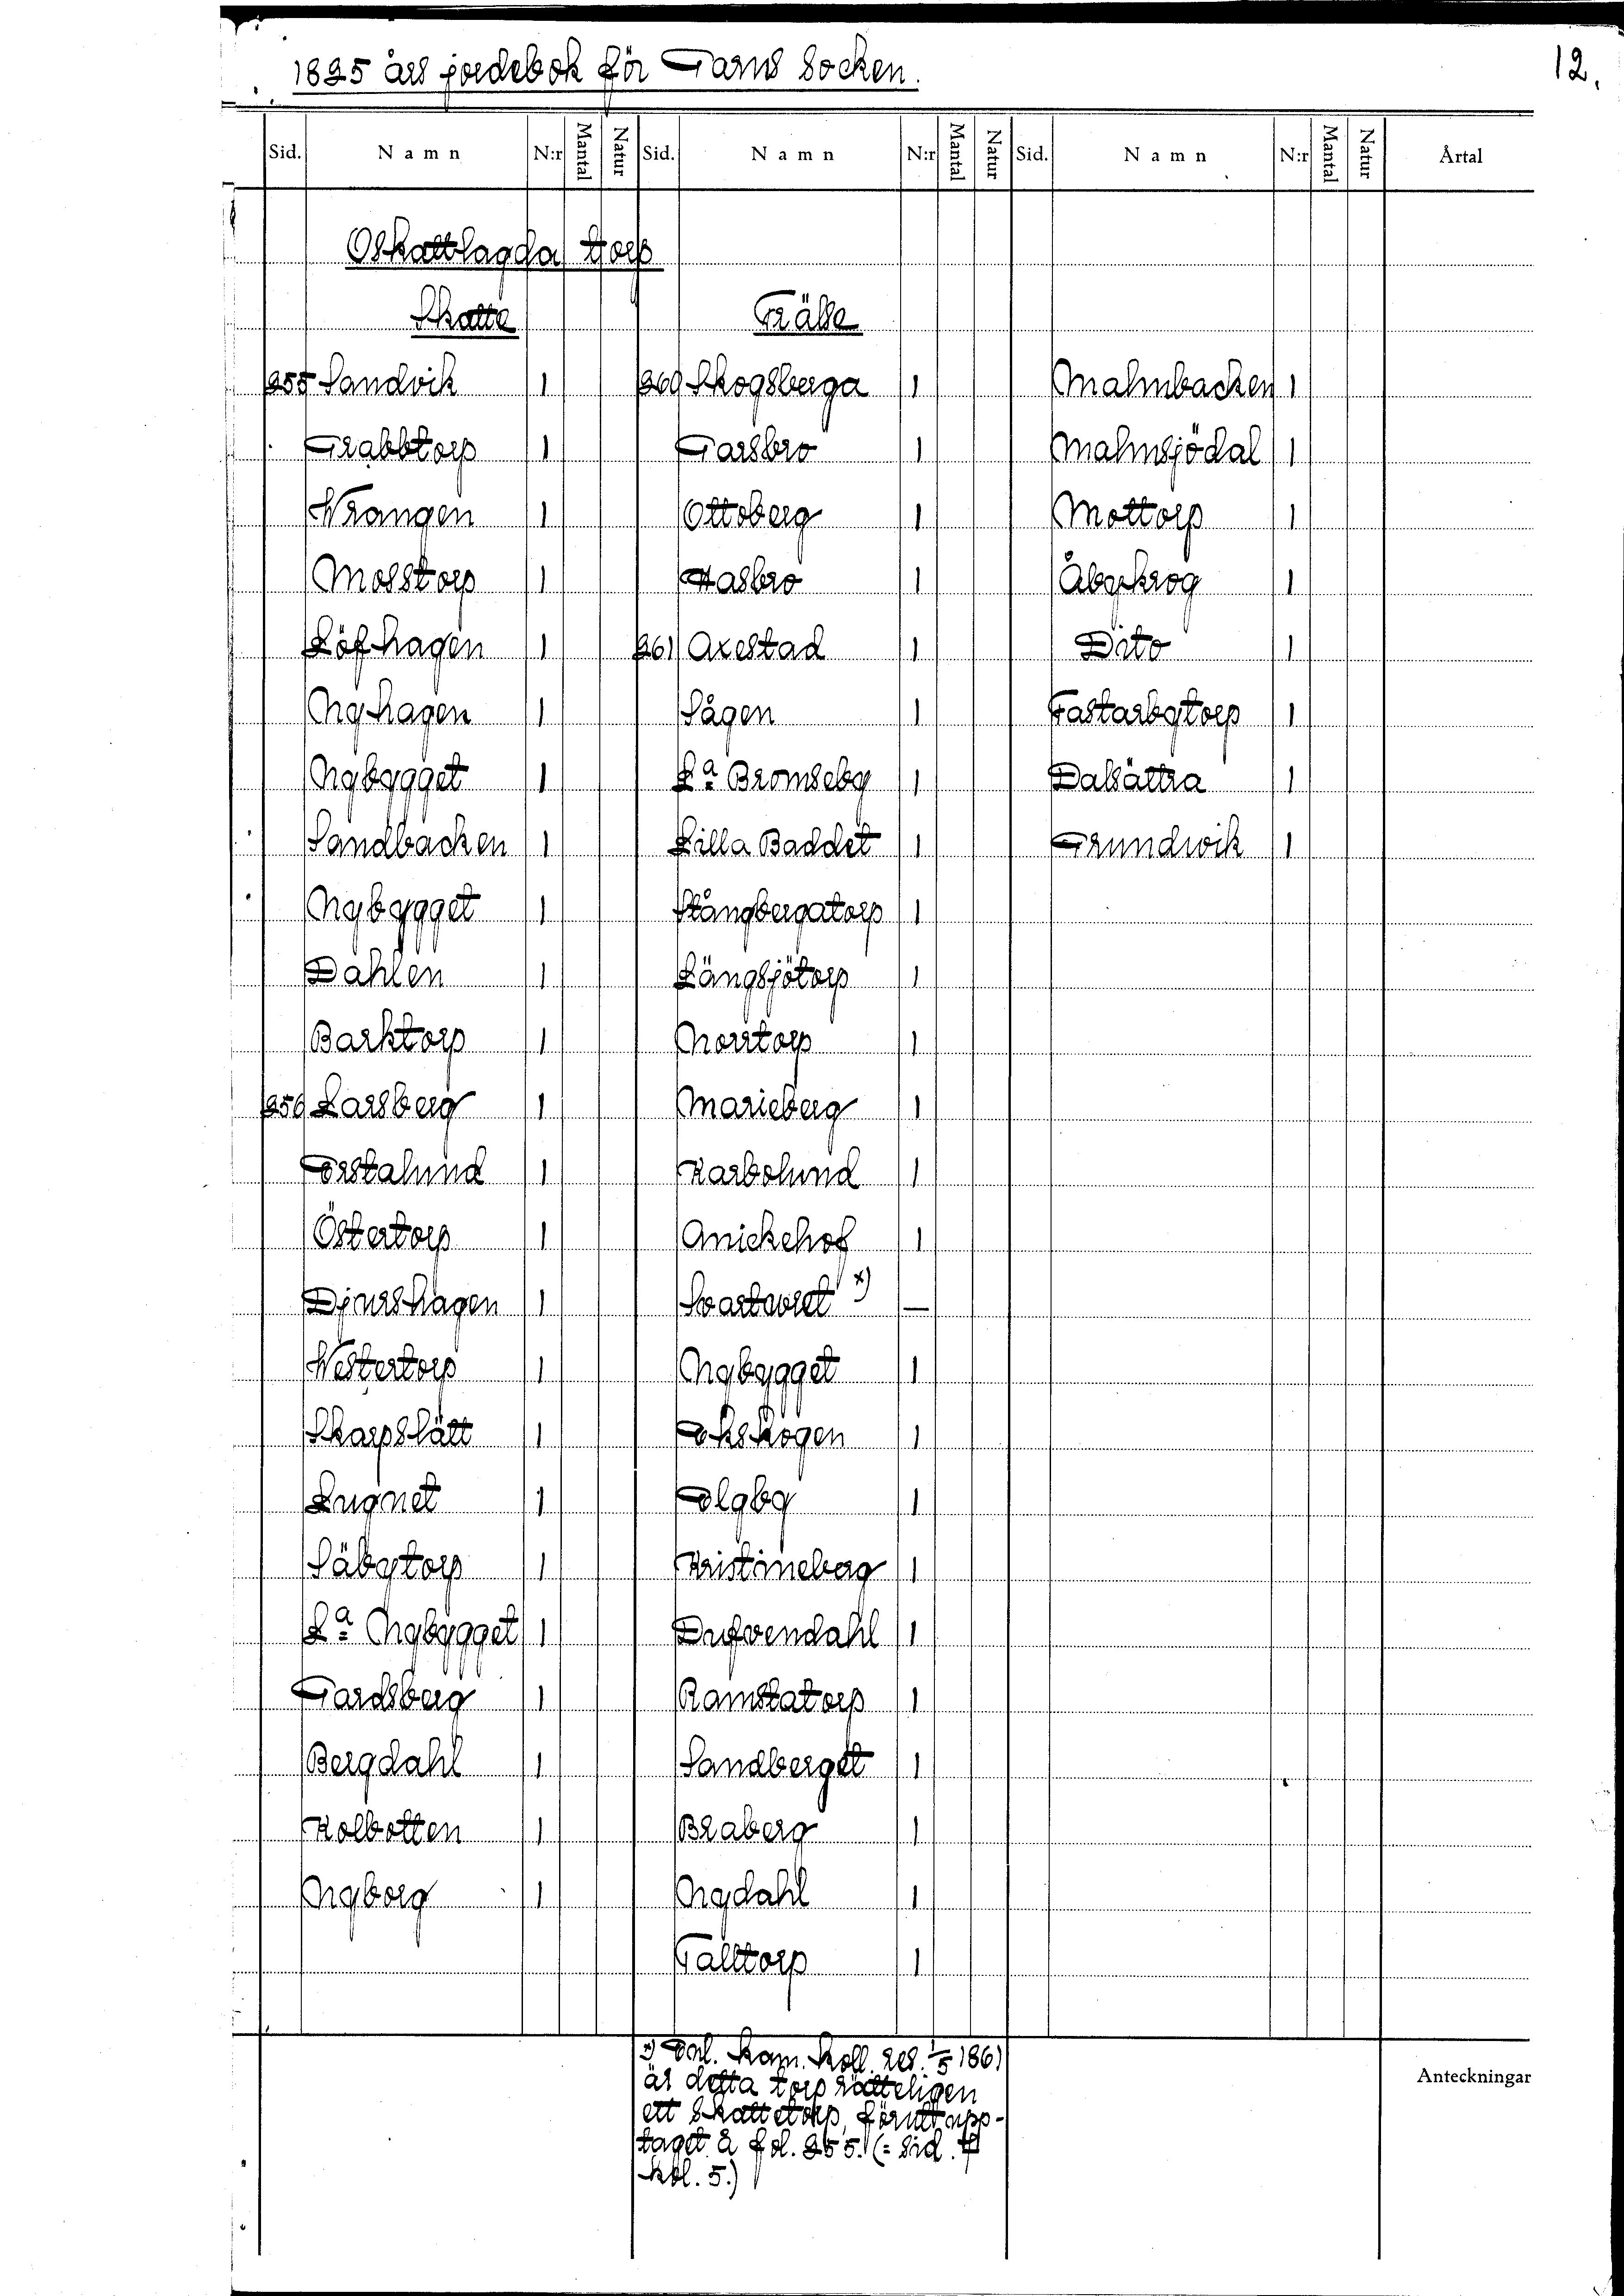 12.
1825 års jordebok för Garns Socken.
Sid. Namn N:r Mantal Natur Sid. Namn N:r Mantal Natur Sid. Namn N:r Mantal Natur Årtal
Oskattlagda torp
Skatte Frälse
255 Sandvik 1 260 Skogsberga 1 Malmbacken 1
Grabbtorp 1 Garsbro 1 Malmsjödal 1
Wrangen 1 Ottoberg 1 Mottorp 1
Mosstorp 1 Hasbro 1 Åbykrog 1
Löfhagen 1 261 Axestad 1 Dito 1
Nyhagen 1 Sågen 1 Fastarbytorp 1
Nybygget 1 La Bromseby 1 Dalsättra 1
Sandbacken 1 Lilla Baddet 1 Grundwik 1
Nybygget 1 Stångbergatorp 1
Dahlen 1 Långsjötorp 1
Barktorp 1 Norrtorp 1
256 Larsberg 1 Marieberg 1
Örstalund 1 Karbolund 1
Östertorp 1 Anickehof 1
Djurshagen 1 Svartvret x) —
Westertorp 1 Nybygget 1
Skarpslätt 1 Ekskogen 1
Lugnet 1 Elgby 1
Säbytorp 1 Kristineberg 1
La Nybygget 1 Dufvendahl 1
Gardsberg 1 Ramstatorp 1
Bergdahl 1 Sandberget 1
Kolbotten 1 Braberg 1
Nyborg 1 Nydahl 1
Talltorp 1
x) Enl. Kam. Koll. res. 1/5 1861
är detta torp rätteligen
ett Skattetorp, förut upp-
taget å fol. 255. (= Sid. 7
kol. 5.)
Anteckningar